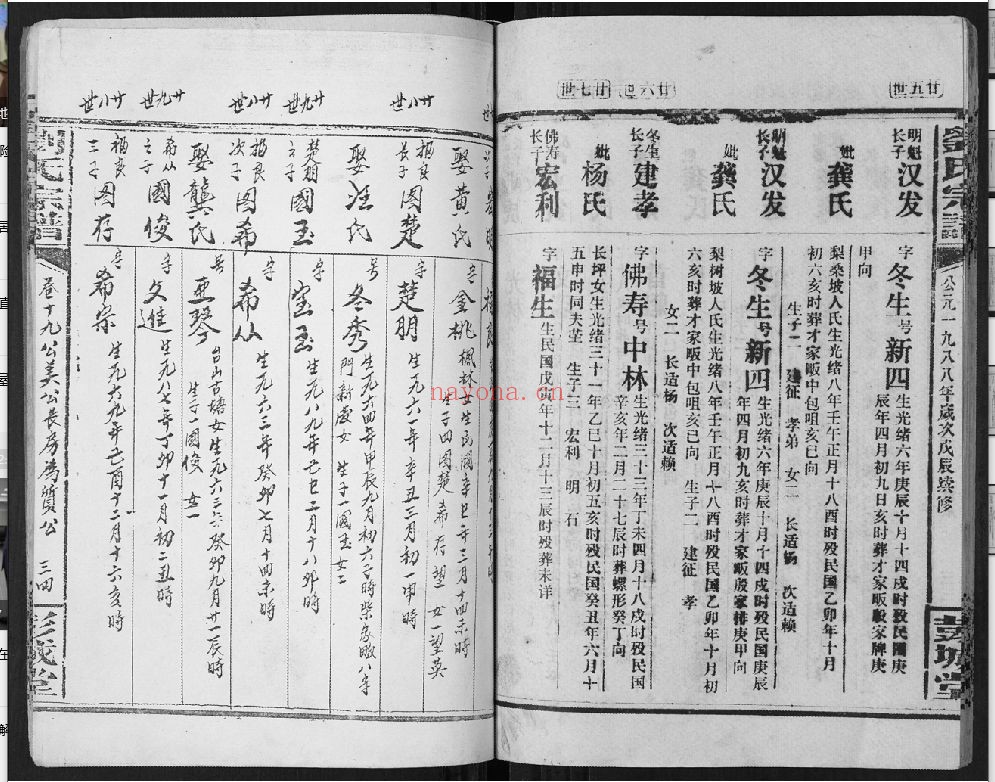 劉氏宗譜
公元一九八八年歲次戊辰续修
彭城堂
廿五世
明魁长子 汉发
字 冬生 号 新四 生光绪六年庚辰十月十四戌时殁民國庚
辰年四月初九日亥时葬才家畈殿家牌庚
甲向
妣 龚氏
梨桑坡人氏生光绪八年壬午正月十八酉时殁民国乙卯年十月
初六亥时葬才家畈中包咀亥已向
生子二 建征 孝弟 女二 长适杨 次适赖
明魁长子 汉发
字 冬生 号 新四 生光绪六年庚辰十月十四戌时殁民国庚辰
年四月初九亥时葬才家畈殿家排庚甲向
妣 龚氏
梨树坡人氏生光绪八年壬午正月十八酉时殁民国乙卯年十月初
六亥时葬才家畈中包咀亥已向 生子二 建征 孝
女二 长适杨 次适赖
廿六
冬生长子 建孝
字 佛寿 号 中林 生光绪三十三年丁未四月十八戌时殁民国
辛亥年二月二十七辰时葬螺形癸丁向
妣 杨氏
长坪女生光绪三十一年乙巳十月初五亥时殁民国癸丑年六月十
五申时同夫茔 生子三 宏利 明 石
廿七世
佛寿长子 宏利
字 福生 生民国戊寅年十二月十三辰时殁葬未详
娶黄氏
名 金桃 楓林女生民國辛巳年三月十四未時
生子四 國楚 希 存 望 女一望英
廿八世
福良長子 國楚
字 楚朋 生一九六一年辛丑三月初一申時
娶汪氏
号 冬秀 生一九六四年甲辰九月初六子時柴家畈八字
門新屋女 生子一國玉 女二
廿九世
楚朋之子 國玉
字 宝玉 生一九八九年己巳二月十八卯時
廿八世
福良次子 國希
字 希从 生一九六三年癸卯七月十四未時
娶龔氏
号 亚琴 台山古塘女生一九六三癸卯九月廿一辰時
生子一國俊 女一
廿九世
希从之子 國俊
字 文進 生一九八七年丁卯十一月初二丑時
廿八世
福良三子 國存
字 希宗 生一九六九年己酉十二月十六亥時
劉氏宗譜
卷十九公美公長房為質公 三四
彭城堂
nayona.cn